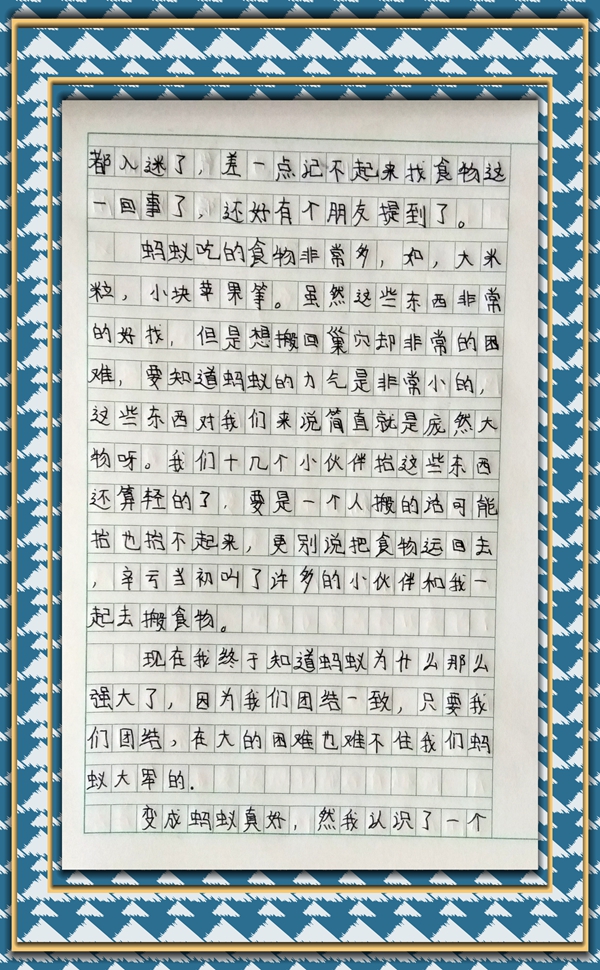 都入迷了，差一点记不起来找食物这
一回事了，还好有个朋友提到了。
蚂蚁吃的食物非常多，如，大米
粒，小块苹果等。虽然这些东西非常
的好找，但是想搬回巢穴却非常的困
难，要知道蚂蚁的力气是非常小的，
这些东西对我们来说简直就是庞然大
物呀。我们十几个小伙伴抬这些东西
还算轻的了，要是一个人搬的话可能
抬也抬不起来，更别说把食物运回去
，辛亏当初叫了许多的小伙伴和我一
起去搬食物。
现在我终于知道蚂蚁为什么那么
强大了，因为我们团结一致，只要我
们团结，在大的困难也难不住我们蚂
蚁大军的.
变成蚂蚁真好，然我认识了一个